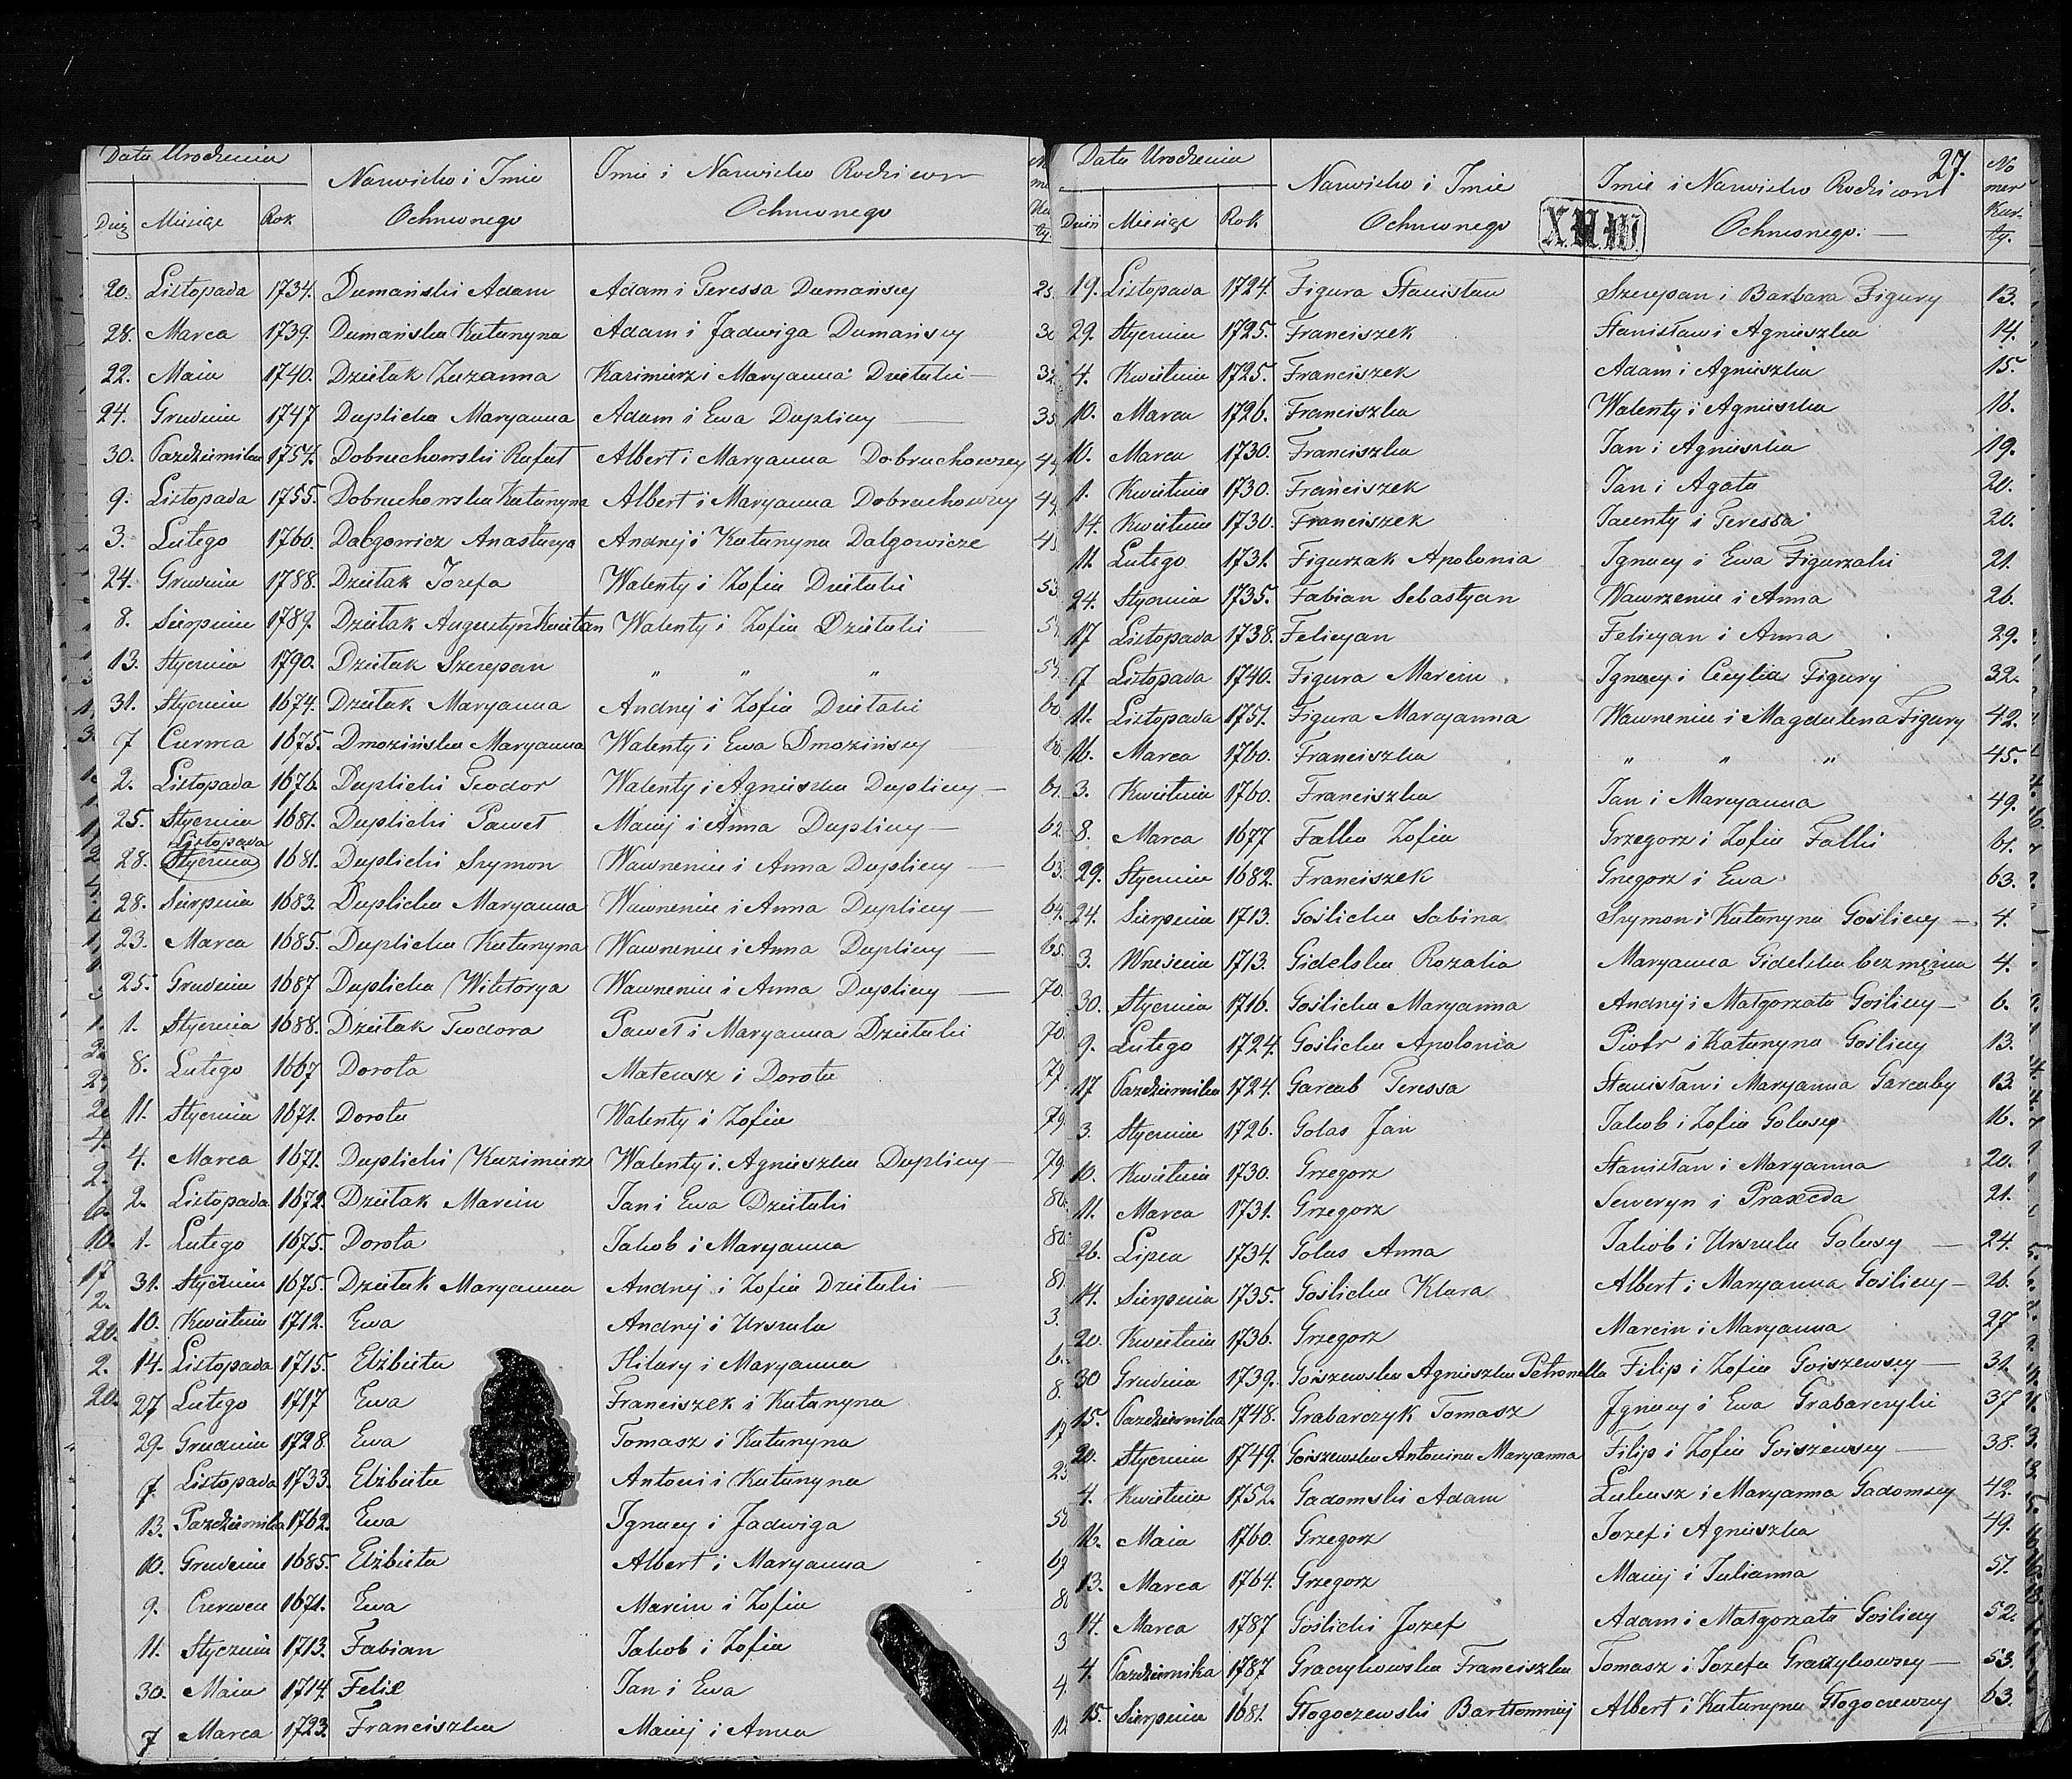 Data Urodzenia
Nazwisko i Imie Ochrzconego
Imie i Nazwisko Rodziców Ochrzconego
Miesiąc Rok
20. Listopada 1734. Dumański Adam Adam i Teressa Dumańscy
28. Marca 1739. Dumańska Katarzyna Adam i Jadwiga Dumańscy 30
22. Maia 1740. Dzietak Zuzanna Kazimierz i Maryanna Dzietaki 32
24. Grudnia 1747 Duplicka Maryanna Adam i Ewa Dupliccy 35
30. Pazdziernika 1754. Dobruchowski Rafał Albert i Maryanna Dobruchowscy
9. Listopada 1755. Dobruchowska Katarzyna Albert i Maryanna Dobruchowscy
3. Lutego 1760. Anastazya Andrzej i Katarzyna
24. Grudnia 1788. Dzietak Jozefa Walenty i Zofia Dzietaki 53
8. Sierpnia 1789. Dzietak Augustyn Kaietan Walenty i Zofia Dzietaki
13. Stycznia 1790. Dzietak Szczepan " " "
31. Stycznia 1674. Dzietak Maryanna Andrzej i Zofia Dzietaki 60
7 Czerwca 1675. Dmozińska Maryanna Walenty i Ewa Dmozińscy 60.
2. Listopada 1676. Duplicki Teodor Walenty i Agnieszka Dupliccy 61.
25. Stycznia 1681. Duplicki Paweł Maciej i Anna Dupliccy 62.
Listopada
28. Stycznia 1681. Duplicki Szymon Wawrzeniec i Anna Dupliccy 63.
28. Sierpnia 1683. Duplicka Maryanna Wawrzeniec i Anna Dupliccy 64.
23. Marca 1685. Duplicka Katarzyna Wawrzeniec i Anna Dupliccy 65.
25. Grudnia 1687 Duplicka Wiktorya Wawrzeniec i Anna Dupliccy 70.
1. Stycznia 1688. Dzietak Teodora Paweł i Maryanna Dzietaki 70.
8. Lutego 1667 Dorota Mateusz i Dorota
11. Stycznia 1671. Dorota Walenty i Zofia 79.
4. Marca 1671. Duplicki Kazimierz Walenty i Agnieszka Dupliccy 79
2. Listopada 1672. Dzietak Marcin Jan i Ewa Dzietaki 80.
1. Lutego 1675. Dorota Jakob i Maryanna 80.
31. Stycznia 1675. Dzietak Maryanna Andrzej i Zofia Dzietaki 81
10. Kwietnia 1712. Ewa Andrzej i Urszula 3.
14. Listopada 1715. Elżbieta Hilary i Maryanna 6.
27 Lutego 1717 Ewa Franciszek i Katarzyna 8.
29. Grudnia 1728. Ewa Tomasz i Katarzyna
7 Listopada 1733. Elżbieta Antoni i Katarzyna
13. Pazdziernika 1762. Ewa Ignacy i Jadwiga 50
10. Grudnia 1685. Elżbieta Albert i Maryanna
9. Czerwca 1671. Ewa Marcin i Zofia
11. Stycznia 1713. Fabian Jakob i Zofia 3
30. Maia 1714. Felix Jan i Ewa 4.
7 Marca 1723. Franciszka Maciej i Anna
27.
Data Urodzenia
Nazwisko i Imie Ochrzconego
X.H.W
Imie i Nazwisko Rodziców Ochrzconego.
No mer Kar- ty.
Dzień Miesiąc Rok
19. Listopada 1724. Figura Stanisław Szczepan i Barbara Figury 13.
29. Stycznia 1725. Franciszek Stanisław i Agnieszka 14.
4. Kwietnia 1725. Franciszek Adam i Agnieszka 15.
10. Marca 1726. Franciszka Walenty i Agnieszka 16.
10. Marca 1730. Franciszka Jan i Agnieszka 19.
1. Kwietnia 1730. Franciszek Jan i Agata 20.
14. Kwietnia 1730. Franciszek Jacenty i Teressa 20.
11. Lutego 1731. Figurzak Apolonia Ignacy i Ewa Figurzaki 21.
24. Stycznia 1735. Fabian Sebastyan Wawrzeniec i Anna 26.
17 Listopada 1738. Felicyan Felicyan i Anna 29.
7 Listopada 1740. Figura Marcin Ignacy i Cecylia Figury 32.
11. Listopada 1751. Figura Maryanna Wawrzeniec i Magdalena Figury 42.
16. Marca 1760. Franciszka " " " 45.
3. Kwietnia 1760. Franciszka Jan i Maryanna 49.
8. Marca 1677 Falka Zofia Grzegorz i Zofia Falki 61.
29. Stycznia 1682. Franciszek Grzegorz i Ewa 63.
24. Sierpnia 1713. Goślicka Sabina Szymon i Katarzyna Gośliccy 4.
3. Wrześnie 1713. Gidelska Rozalia Maryanna Gidelska bez mężna 4.
30. Stycznia 1716. Goślicka Maryanna Andrzej i Małgorzata Gośliccy 6.
9. Lutego 1724. Goślicka Apolonia Piotr i Katarzyna Gośliccy 13.
17 Pazdziernika 1724. Garcab Teressa Stanisław i Maryanna Garcaby 13.
3. Stycznia 1726. Golas Jan Jakob i Zofia Golasy 16.
10. Kwietnia 1730. Grzegorz Stanisław i Maryanna 20.
11. Marca 1731. Grzegorz Seweryn i Praxeda 21.
26. Lipca 1734. Golas Anna Jakob i Urszula Golasy 24.
14. Sierpnia 1735. Goślicka Klara Albert i Maryanna Gośliccy 26.
20. Kwietnia 1736. Grzegorz Marcin i Maryanna 27
30 Grudnia 1739. Goiszewska Agnieszka Petronella Filip i Zofia Goiszewscy 31.
15. Pazdziernika 1748. Grabarczyk Tomasz Ignacy i Ewa Grabarczyki 37
20. Stycznia 1749. Goiszewska Antonina Maryanna Filip i Zofia Goiszewscy 38.
4. Kwietnia 1752. Gadomski Adam Łukasz i Maryanna Gadomscy 42.
16. Maia 1760. Grzegorz Jozef i Agnieszka 49.
13. Marca 1764. Grzegorz Maciej i Julianna 51.
14. Marca 1787 Goślicki Jozef Adam i Małgorzata Gośliccy 52.
4. Pazdziernika 1787 Graczykowska Franciszka Tomasz i Jozefa Graczykowscy 53.
15. Sierpnia 1681. Głogoczewski Bartłomiej Albert i Katarzyna Głogoczewscy 63.